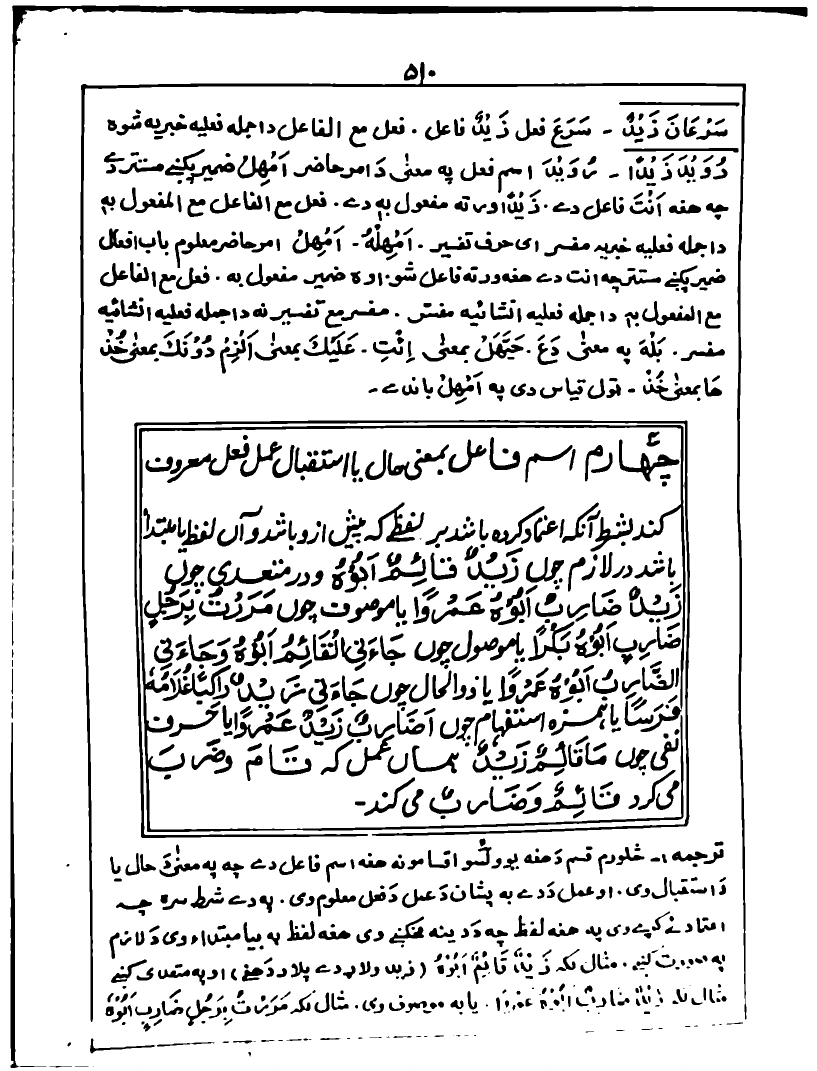 ۵۱۰
سَرْعَانَ زَیْدٌ - سَرَعَ فعل زَیْدٌ فاعل . فعل مع الفاعل دا جمله فعلیه خبریه شوه
رُوَیْدَ زَیْدًا - رُوَیْدَ اسم فعل په معنیٰ دَ امر حاضر اَمْهِلْ ضمیر پکښے مستتر دے
چه هغه اَنْتَ فاعل دے . زَیْدًا ورته مفعول به دے . فعل مع الفاعل مع المفعول به
دا جمله فعلیه خبریه مفسر ای حرف تفسیر . اَمْهِلْهُ - اَمْهِلْ امر حاضر معلوم باب افعال
ضمیر پکښے مستتر چه انت دے هغه ورته فاعل شو . او ہ ضمیر مفعول به . فعل مع الفاعل
مع المفعول به دا جمله فعلیه انشائیه مفسِّر . مفسر مع تفسیر نه دا جمله فعلیه انشائیه
مفسر . بَلْهَ په معنیٰ دَعْ . حَیَّهَلْ بمعنٰی اِئْتِ . عَلَیْكَ بمعنٰی اَلْزِمْ دُوْنَكَ بمعنٰی خُذْ
هَا بمعنٰی خُذْ - ټول قیاس دی په اَمْهِلْ باندے -
چہارم اسم فاعل بمعنی حال یا استقبال عمل فعل معروف
کند بشرط آنکہ اعتماد کردہ باشد بر لفظے کہ پیش ازو باشد و آں لفظ یا مبتدأ
باشد در لازم چوں زَیْدٌ قَائِمٌ اَبُوْهُ و در متعدی چوں
زَیْدٌ ضَارِبٌ اَبُوْهُ عَمْرًوا یا موصوف چوں مَرَرْتُ بِرَجُلٍ
ضَارِبٍ اَبُوْهُ بَکْرًا یا موصول چوں جَاءَنِی الْقَائِمُ اَبُوْهُ وَجَاءَنِی
الضَّارِبُ اَبُوْهُ عَمْرًوا یا ذوالحال چوں جَاءَنِی زَیْدٌ رَاکِبًا غُلَامُهٗ
فَرَسًا یا ہمزہ استفہام چوں اَضَارِبٌ زَیْدٌ عَمْرًوا یا حرف
نفی چوں مَا قَائِمٌ زَیْدٌ ہماں عمل کہ قَامَ وضَرَبَ
می کرد قَائِمٌ وَضَارِبٌ می کند -
ترجمه :- څلورم قسم دَ هغه یوولسو اقسامو نه هغه اسم فاعل دے چه په معنیٰ دَ حال یا
دَ استقبال وی . او عمل دَ دے به پشان دَ عمل دَ فعل معلوم وی . په دے شرط سره چه
اعتماد ئے کړے وی په هغه لفظ چه دَ دینه مخکښے وی هغه لفظ به بیا مبتداء وی دَ لازم
په صورت کښے . مثال لکه زَیْدٌ قَائِمٌ اَبُوْهُ ( زید ولاړ دے پلار دَ هغه ) او په متعدی کښے
مثال لکه زَیْدٌ ضَارِبٌ اَبُوْهُ عَمْرًوا . یا به موصوف وی . مثال لکه مَرَرْتُ بِرَجُلٍ ضَارِبٍ اَبُوْهُ